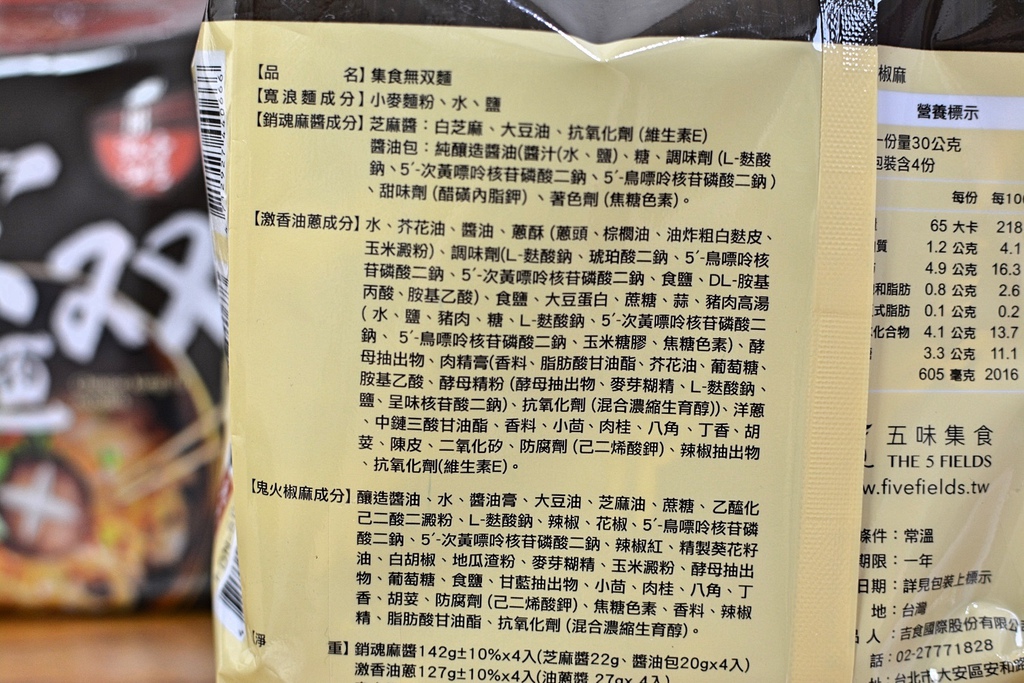 【品 名】集食無双麵
【寬浪麵成分】小麥麵粉、水、鹽
【銷魂麻醬成分】芝麻醬：白芝麻、大豆油、抗氧化劑(維生素E)
醬油包：純釀造醬油(醬汁(水、鹽)、糖、調味劑(L-麩酸
鈉、5´-次黃嘌呤核苷磷酸二鈉、5´-鳥嘌呤核苷磷酸二鈉)
、甜味劑(醋磺內脂鉀)、著色劑(焦糖色素)。
【激香油蔥成分】水、芥花油、醬油、蔥酥(蔥頭、棕櫚油、油炸粗白麩皮、
玉米澱粉)、調味劑(L-麩酸鈉、琥珀酸二鈉、5´-鳥嘌呤核
苷磷酸二鈉、5´-次黃嘌呤核苷磷酸二鈉、食鹽、DL-胺基
丙酸、胺基乙酸)、食鹽、大豆蛋白、蔗糖、蒜、豬肉高湯
(水、鹽、豬肉、糖、L-麩酸鈉、5´-次黃嘌呤核苷磷酸二
鈉、5´-鳥嘌呤核苷磷酸二鈉、玉米糖膠、焦糖色素)、酵
母抽出物、肉精膏(香料、脂肪酸甘油酯、芥花油、葡萄糖、
胺基乙酸、酵母精粉(酵母抽出物、麥芽糊精、L-麩酸鈉、
鹽、呈味核苷酸二鈉)、抗氧化劑(混合濃縮生育醇))、洋蔥
、中鏈三酸甘油酯、香料、小茴、肉桂、八角、丁香、胡
荽、陳皮、二氧化矽、防腐劑(己二烯酸鉀)、辣椒抽出物
、抗氧化劑(維生素E)。
【鬼火椒麻成分】釀造醬油、水、醬油膏、大豆油、芝麻油、蔗糖、乙醯化
己二酸二澱粉、L-麩酸鈉、辣椒、花椒、5´-鳥嘌呤核苷磷
酸二鈉、5´-次黃嘌呤核苷磷酸二鈉、辣椒紅、精製葵花籽
油、白胡椒、地瓜渣粉、麥芽糊精、玉米澱粉、酵母抽出
物、葡萄糖、食鹽、甘藍抽出物、小茴、肉桂、八角、丁
香、胡荽、防腐劑(己二烯酸鉀)、焦糖色素、香料、辣椒
精、脂肪酸甘油酯、抗氧化劑(混合濃縮生育醇)。
【淨 重】銷魂麻醬142g±10%x4入(芝麻醬22g、醬油包20gx4入)
激香油蔥127g±10%x4入(油蔥醬 27gx 4入)
椒麻
營養標示
一份量30公克
包裝含4份
每份 每100
65 大卡 218
質 1.2 公克 4.1
4.9 公克 16.3
和脂肪 0.8 公克 2.6
式脂肪 0.1 公克 0.2
化合物 4.1 公克 13.7
3.3 公克 11.1
605 毫克 2016
五味集食
THE 5 FIELDS
w.fivefields.tw
條件：常溫
期限：一年
日期：詳見包裝上標示
地：台灣
人：吉食國際股份有限公
話：02-27771828
址：台北市大安區安和路
双